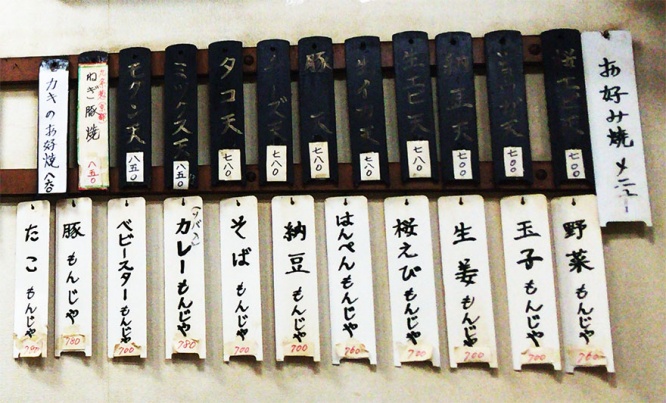 お好み焼 メニュー
桜エビ天
六〇〇
六〇〇
納豆天
六〇〇
生エビ天
七八〇
七八〇
豚 天
七八〇
チーズ天
七八〇
タコ天
七八〇
ミックス天
八五〇
モダン天
八五〇
ねぎ豚焼
八五〇
カキのお好焼
野菜もんじゃ
玉子もんじゃ
700
生姜もんじゃ
桜えびもんじゃ
700
はんぺんもんじゃ
760
納豆もんじゃ
700
そばもんじゃ
700
カレーもんじゃ
780
ベビースターもんじゃ
700
豚もんじゃ
780
たこもんじゃ
780